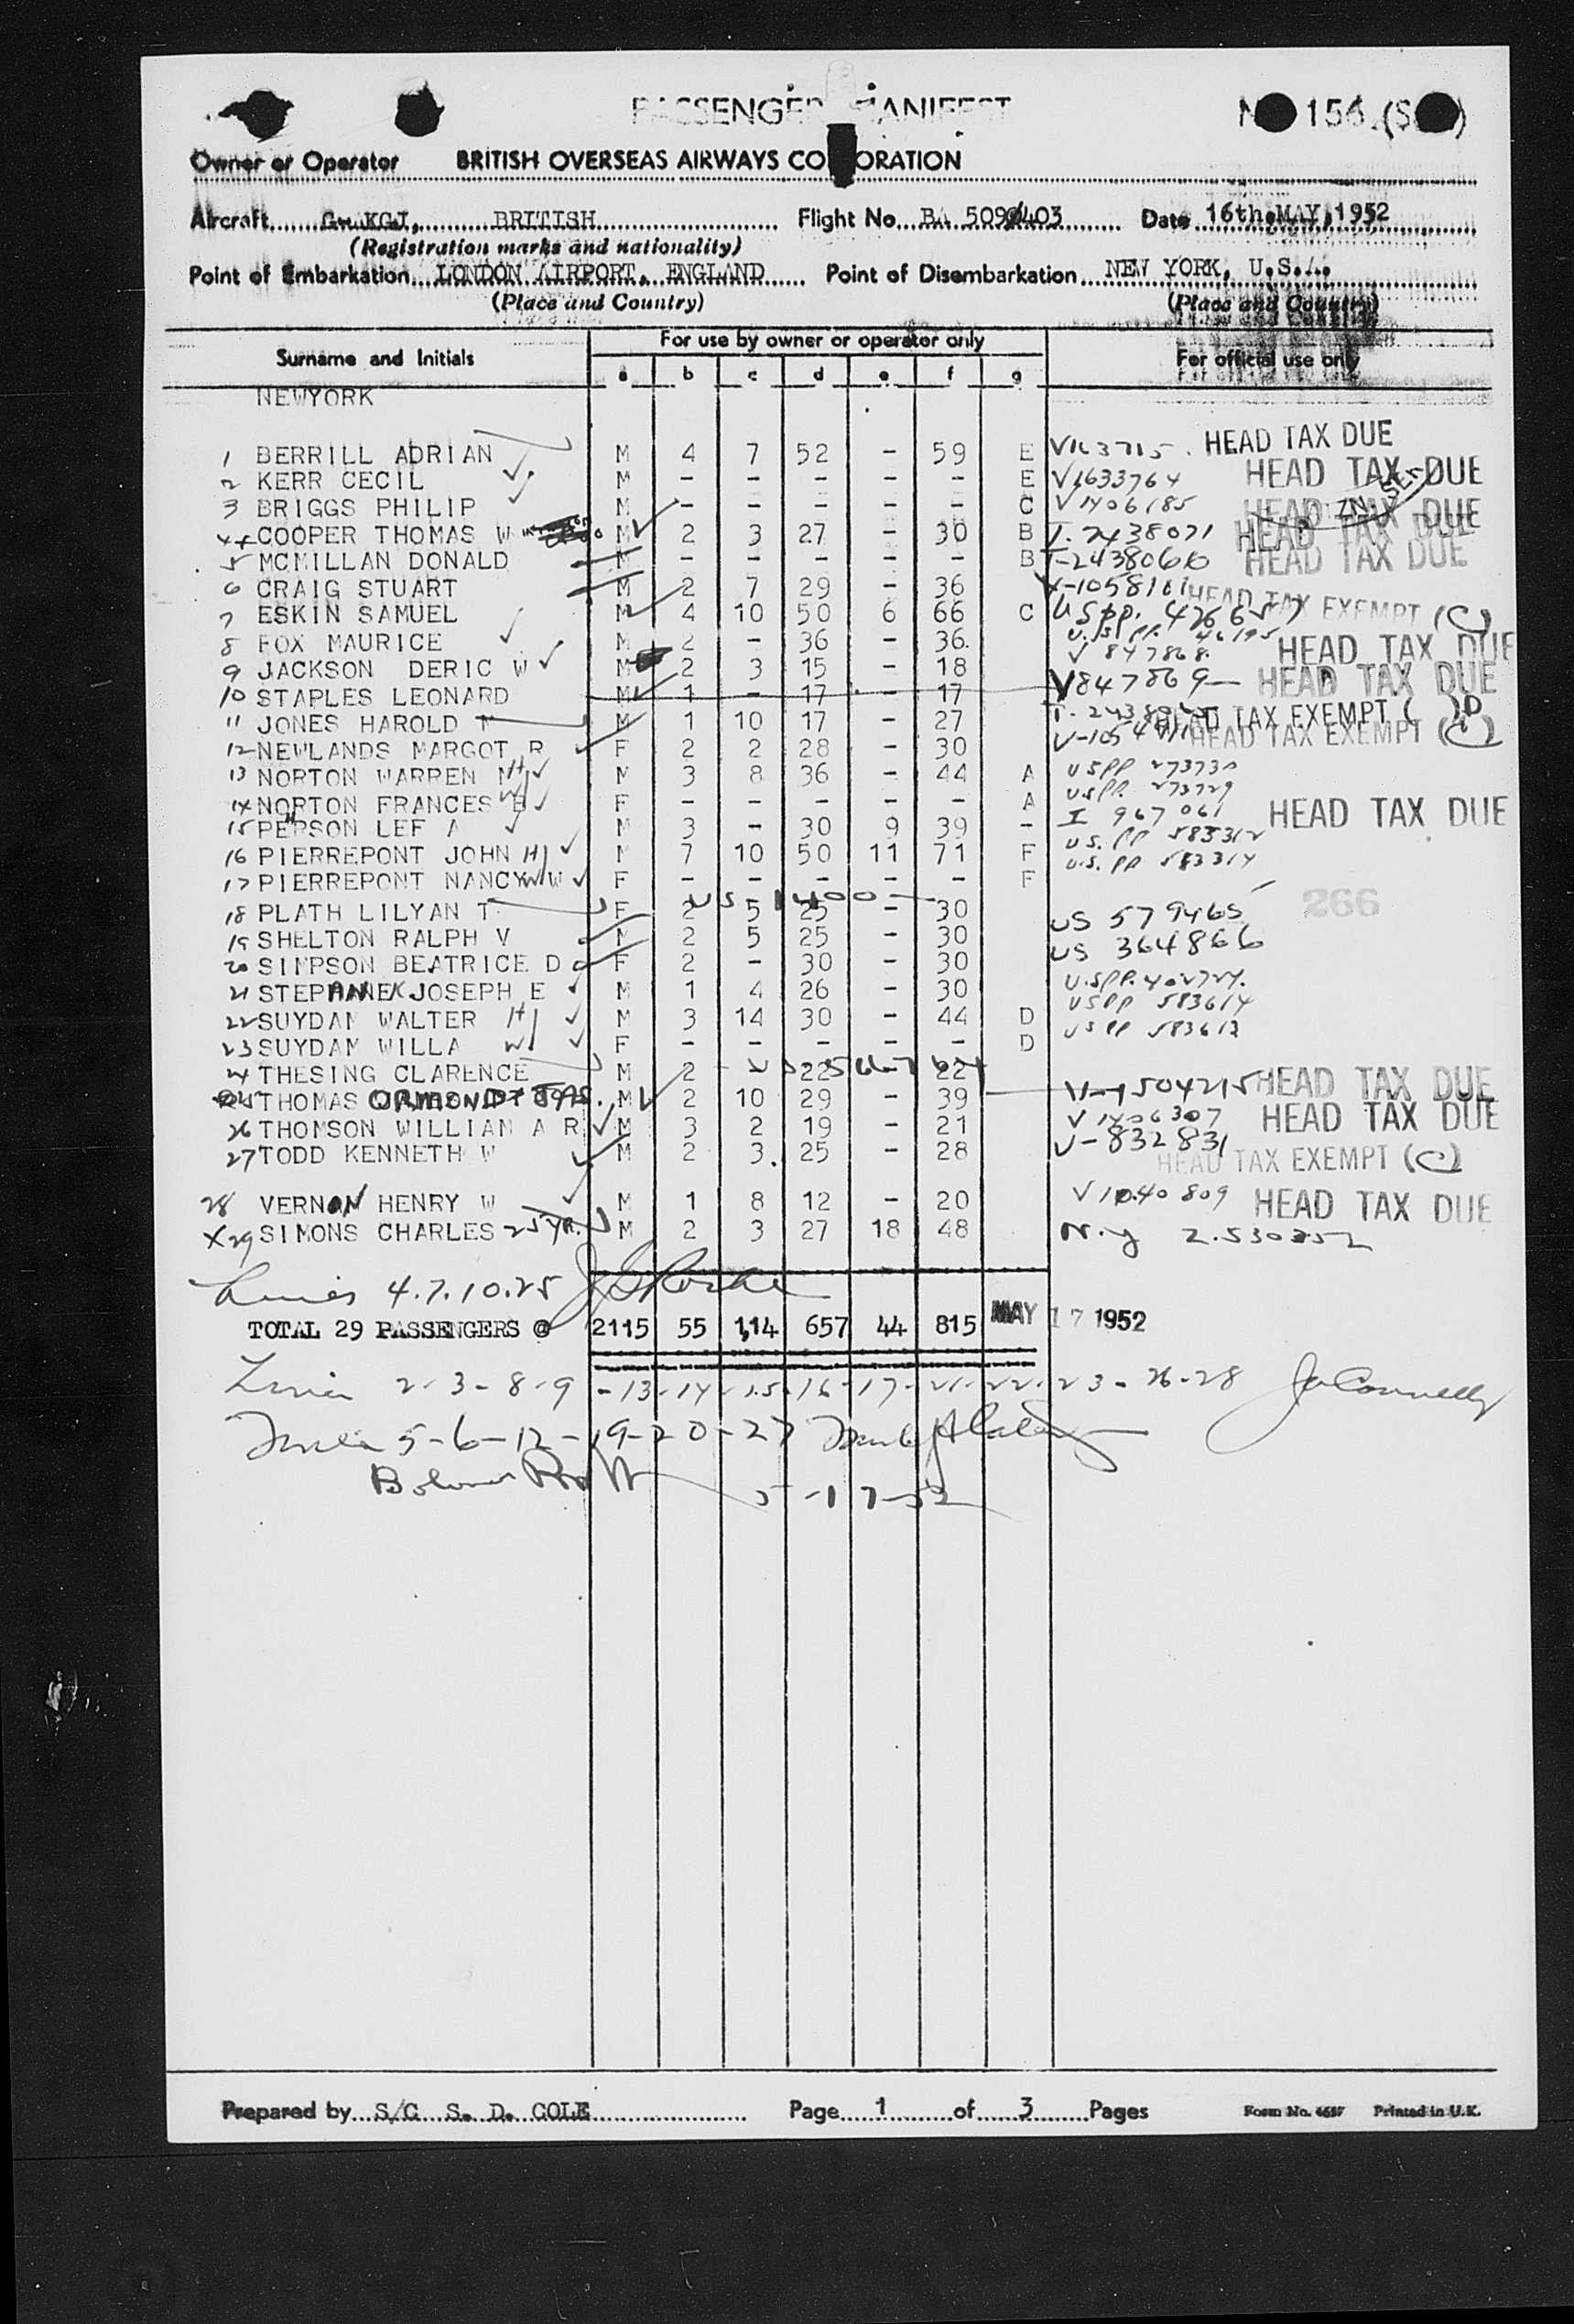 PASSENGER MANIFEST
Owner or Operator BRITISH OVERSEAS AIRWAYS CORPORATION
Aircraft G- KGJ, BRITISH Flight No BA 509/403 Date 16th.MAY,1952
(Registration marks and nationality)
Point of Embarkation LONDON AIRPORT, ENGLAND Point of Disembarkation NEW YORK, U.S.A.
(Place and Country) (Place and Country)
Surname and Initials For use by owner or operator only For official use only
a b c d e f g
NEWYORK
1 BERRILL ADRIAN M 4 7 52 - 59 E HEAD TAX DUE
2 KERR CECIL M - - - - - E V1633764 HEAD TAX DUE
3 BRIGGS PHILIP M - - - - - C V1406185 HEAD TAX DUE
4 COOPER THOMAS W M 2 3 27 - 30 B T-2438071 HEAD TAX DUE
5 MCMILLAN DONALD M - - - - - B HEAD TAX DUE
6 CRAIG STUART M 2 7 29 - 36 V-1058101 HEAD TAX EXEMPT (C)
7 ESKIN SAMUEL M 4 10 50 6 66 C
8 FOX MAURICE M 2 - 36 - 36. HEAD TAX DUE
9 JACKSON DERIC W M 2 3 15 - 18 V 847868 HEAD TAX DUE
10 STAPLES LEONARD M 1 - 17 - 17 V847869
11 JONES HAROLD M 1 10 17 - 27 HEAD TAX EXEMPT
12 NEWLANDS MARGOT R F 2 2 28 - 30 HEAD TAX EXEMPT (C)
13 NORTON WARREN H M 3 8 36 - 44 A USPP 273730
14 NORTON FRANCES W F - - - - - A USPP 273729
15 PEHRSON LEF A M 3 - 30 9 39 - I 967061 HEAD TAX DUE
16 PIERREPONT JOHN H M 7 10 50 11 71 F U.S. PP 583312
17 PIERREPONT NANCY W F - - - - - F U.S. PP 583314
18 PLATH LILYAN T F 2 5 25 - 30 266
19 SHELTON RALPH V M 2 5 25 - 30 US 579465
20 SIMPSON BEATRICE D F 2 - 30 - 30 US 364866
21 STEPHANEK JOSEPH E M 1 4 26 - 30 U.S.PP. 402727.
22 SUYDAM WALTER H M 3 14 30 - 44 D USPP 583614
23 SUYDAM WILLA W F - - - - - D USPP 583613
24 THESING CLARENCE M 2 - 22 - 22
25 THOMAS ORMOND M 2 10 29 - 39 V-1504215 HEAD TAX DUE
26 THOMSON WILLIAM A R M 3 2 19 - 21 V 1406307 HEAD TAX DUE
27 TODD KENNETH W M 2 3 25 - 28 V-832831 HEAD TAX EXEMPT (C)
28 VERNON HENRY W M 1 8 12 - 20 V 1040809 HEAD TAX DUE
X 29 SIMONS CHARLES 25 YR. M 2 3 27 18 48 N.Y
4.7.10.25
TOTAL 29 PASSENGERS @ 2115 55 114 657 44 815 MAY 17 1952
2-3-8-9-13-14-15-16-17-21-22-23-26-28
5-6-12-19-20-27
5-17-52
Prepared by S/C S. D. COLE Page 1 of 3 Pages Form No. 4687 Printed in U.K.